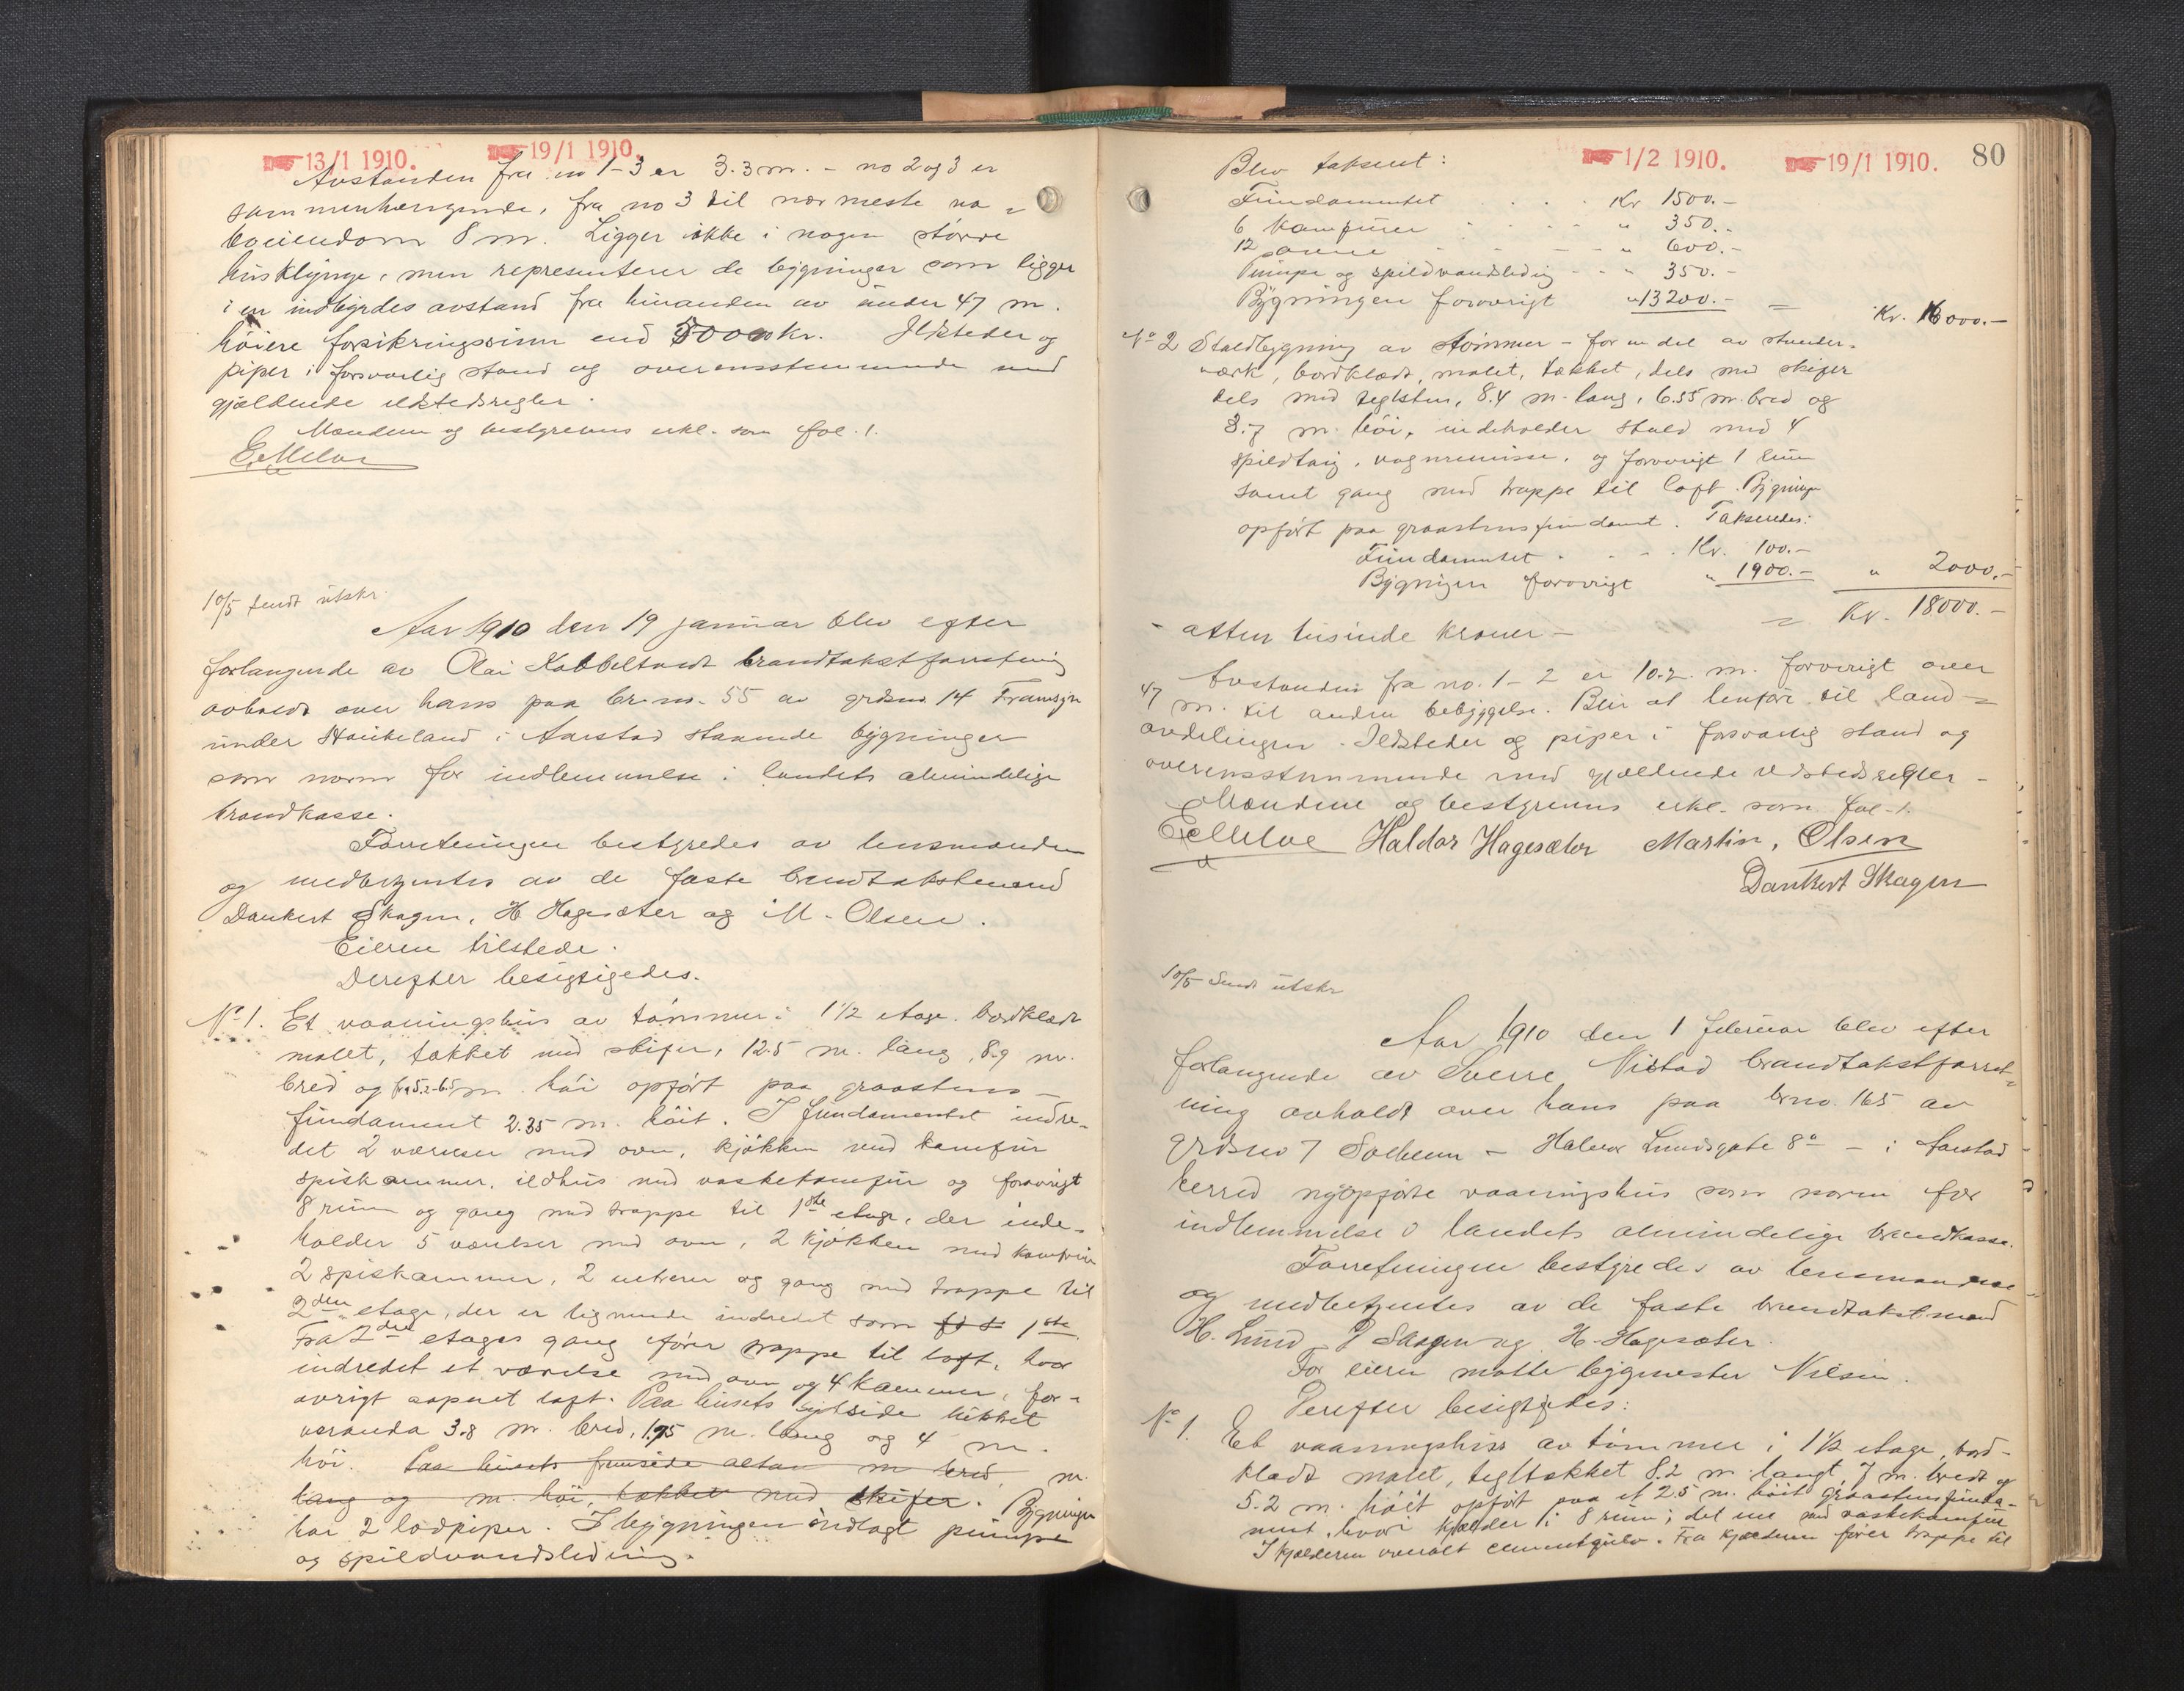 13/1 1910. 19/1 1910.
Avstanden fra no 1-3 er 3.3 m. - no 2 og 3 er
sammenhængende, fra no 3 til nærmeste na-
boeiendom 8 m. Ligger ikke i nogen større
husklynge, men representerer de bygninger som ligger
i en indbyrdes avstand fra hinanden av under 47 m.
høiere forsikringssum end 50000 Kr. Ildsteder og
piper i forsvarlig stand og overensstemmende med
gjældende ildstedsregler.
Mændene og bestyrerens erkl. som fol. 1.
10/5 sendt utskr.
Aar 1910 den 19 januar blev efter
forlangende av Olai Kobbeltvedt brandtakstforretning
avholdt over hans paa br.no. 55 av grdsno. 14
under Haukeland i Aarstad staaende bygninger
som norm for indlemmelse i landets almindelige
brandkasse.
Forretningen bestyredes av lensmanden
og medbetjentes av de faste brandtakstmænd
Dankert Skagen, H. Hagesæter og M. Olsen.
Eieren tilstede.
Derefter besigtigedes.
No 1. Et vaaningshus av tømmer i 1 1/2 etage, bordklædt
malet, tækket med skifer, 12.5 m. lang, 8.9 m.
bred og fra 5.2-6.5 m. høi opført paa graastens-
fundament 2.35 m. høit. I fundamentet indre-
det 2 værelser med ovn, kjøkken med komfur
spiskammer, ildhus med vaskekomfur og forøvrigt
8 rum og gang med trappe til 1ste etage, der inde-
holder 5 værelser med ovn, 2 kjøkken med komfur
2 spiskammer, 2 entreer og gang med trappe til
2den etage, der er lignende indredet som 1ste
Fra 2den etages gang fører trappe til loft, hvor
indredet et værelse med ovn og 4 kammer, for-
øvrigt aapnet loft. Paa husets sydside tækket
veranda 3.8 m. bred, 1.95 m. lang og 4 m.
høi. Paa husets framside altan m bred m.
lang og m. høi, tækket med skifer. Bygningen
har 2 lodpiper. I bygningen indlagt pumpe
og spildvandsledning.
1/2 1910. 19/1 1910. 80
Blev taksert:
Fundamentet . . . Kr 1500.-
6 Komfurer . . . . " 350.-
12 ovne - - - - " 600.-
Pumpe og spildvandsledning - - " 350.-
Bygningen forøvrigt " 13200.- = Kr. 16000.-
No 2 Staldbygning av tømmer - for en del av stender-
værk, bordklædt, malet, tækket, dels med skifer
dels med teglsten, 8.4 m. lang, 6.55 m. bred og
3.7 m. høi, indeholder stald med 4
spildtaug, vognremisse, og forøvrigt 1 rum
samt gang med trappe til loft. Bygningen
opført paa graastensfundament. Takseredes:
Fundamentet . - - . Kr. 100.-
Bygningen forøvrigt " 1900.- " 2000.-
= Kr. 18000.-
- atten tusinde kroner -
Avstanden fra no. 1-2 er 10.2 m. forøvrigt over
47 m. til anden bebyggelse. Blir at henføre til land-
avdelingen. Ildsteder og piper i forsvarlig stand og
overensstemmende med gjældende ildstedsregler -
Mændene og bestyrerens erkl. som fol. 1.
Haldor Hagesæter Martin, Olsen
Dankert Skagen
10/5 Sendt utskr
Aar 1910 den 1 februar blev efter
forlangende av Sverre Nistad brandtakstforret-
ning avholdt over hans paa brno. 165 av
grdsno 7 Solheim - Halvor Lundsgate 8a - i Aarstad
herred nyopførte vaaningshus som norm for
indlemmelse i landets almindelige brandkasse.
Forretningen bestyredes av lensmanden
og medbetjentes av de faste brandtakstmænd
H. Lund, D Skagen og H. Hagesæter.
For eieren møtte bygmester Nilsen.
Derefter besigtigedes:
No 1. Et vaaningshus av tømmer i 1 1/2 etage, bord-
klædt malet, tegltækket 8.2 m. langt, 7 m. bredt og
5.2 m. høit opført paa et 2.5 m. høit graastensfunda-
ment, hvori kjælder i 8 rum; det ene med vaskekomfur
I kjælderen overalt cementgulv. Fra kjælderen fører trappe til